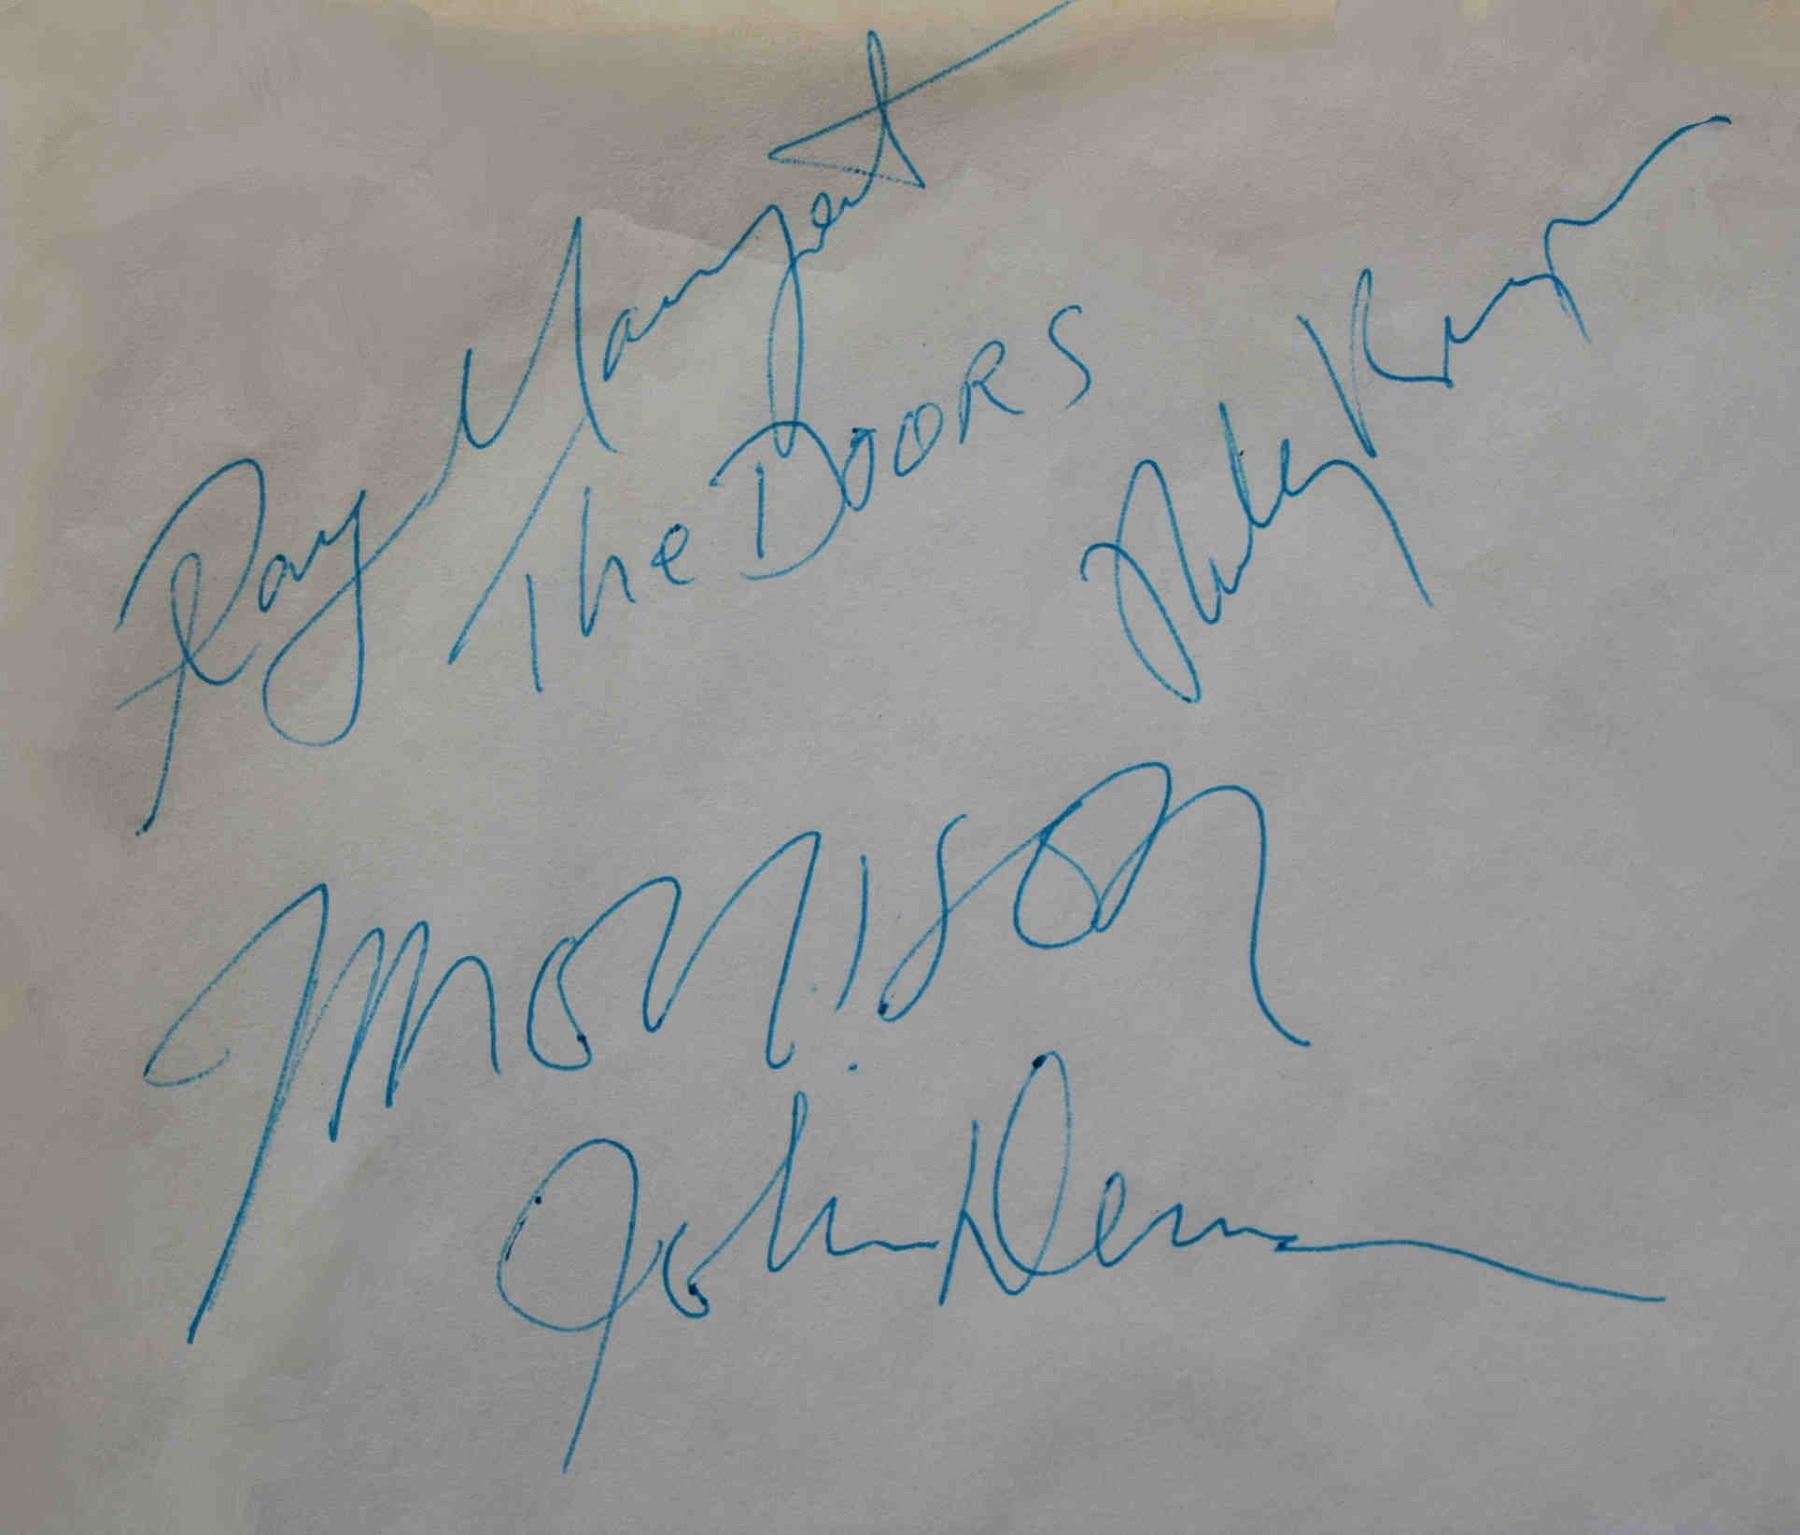 Ray Manzarek
The DOORS
Robby Krieger
J Morrison
John Densmore